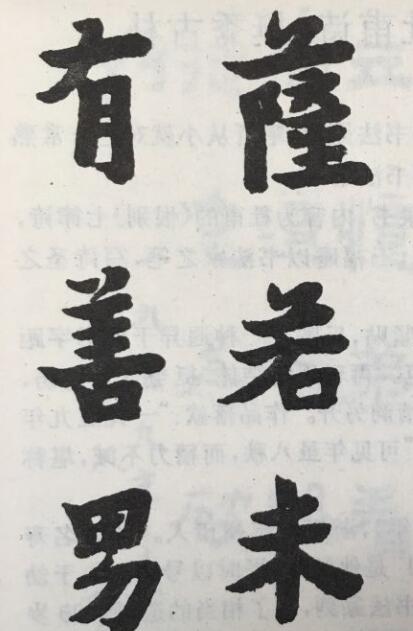 薩若未
有善男